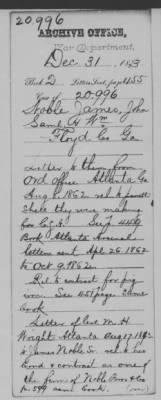 20996
ARCHIVE OFFICE,
War Department,
Dec 31 1883
Book 2 Letters Sent, page 455
20996
Noble James, John
Saml & Wm
Floyd Co Ga
Letter to them from
Ord Office Atlanta Ga
Aug 8 1862 rel to
Shells they were making
for C.S. See 449
Book Atlanta Arsenal
letters sent Apl 26. 1862
to Oct 9. 1862
Rel to contract for pig
iron. See 451 page same
book
Letter of Col M. H.
Wright Atlanta Aug 17 1863
to James Noble Sr. rel to his
bond & contract as one of
the firm of Noble Bros & Co
p 599 same book.